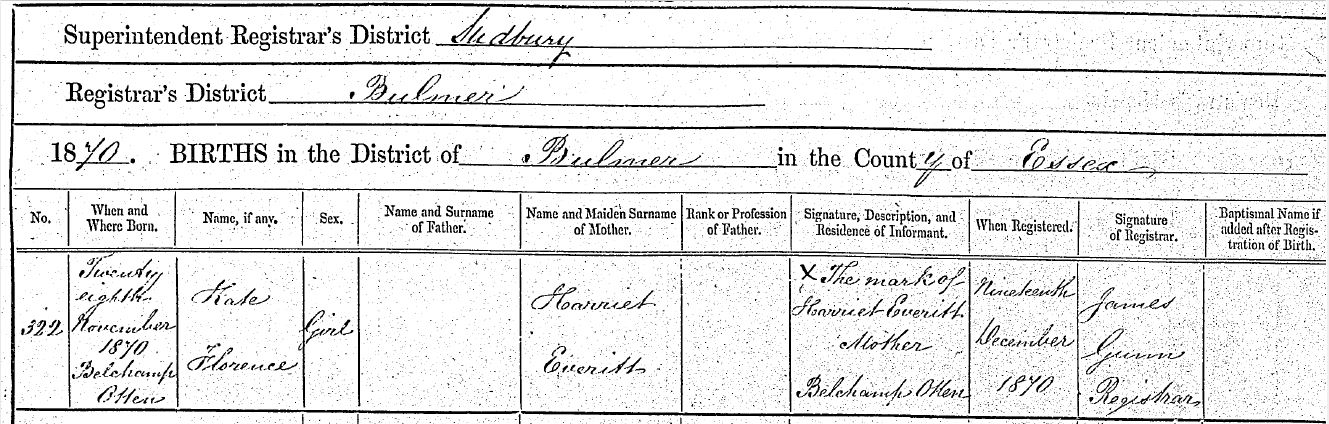 Superintendent Registrar's District Sudbury
Registrar's District Bulmer
1870. BIRTHS in the District of Bulmer in the County of Essex
No.
When and
Where Born.
Name, if any.
Sex.
Name and Surname
of Father.
Name and Maiden Surname
of Mother.
Rank or Profession
of Father.
Signature, Description, and
Residence of Informant.
When Registered.
Signature
of Registrar.
Baptismal Name if
added after Regis-
tration of Birth.
322
Twenty
eighth
November
1870
Belchamp
Otten
Kate
Florence
Girl
Harriet
Everitt
X The mark of
Harriet Everitt
Mother
Belchamp Otten
Nineteenth
December
1870
James
Gunn
Registrar